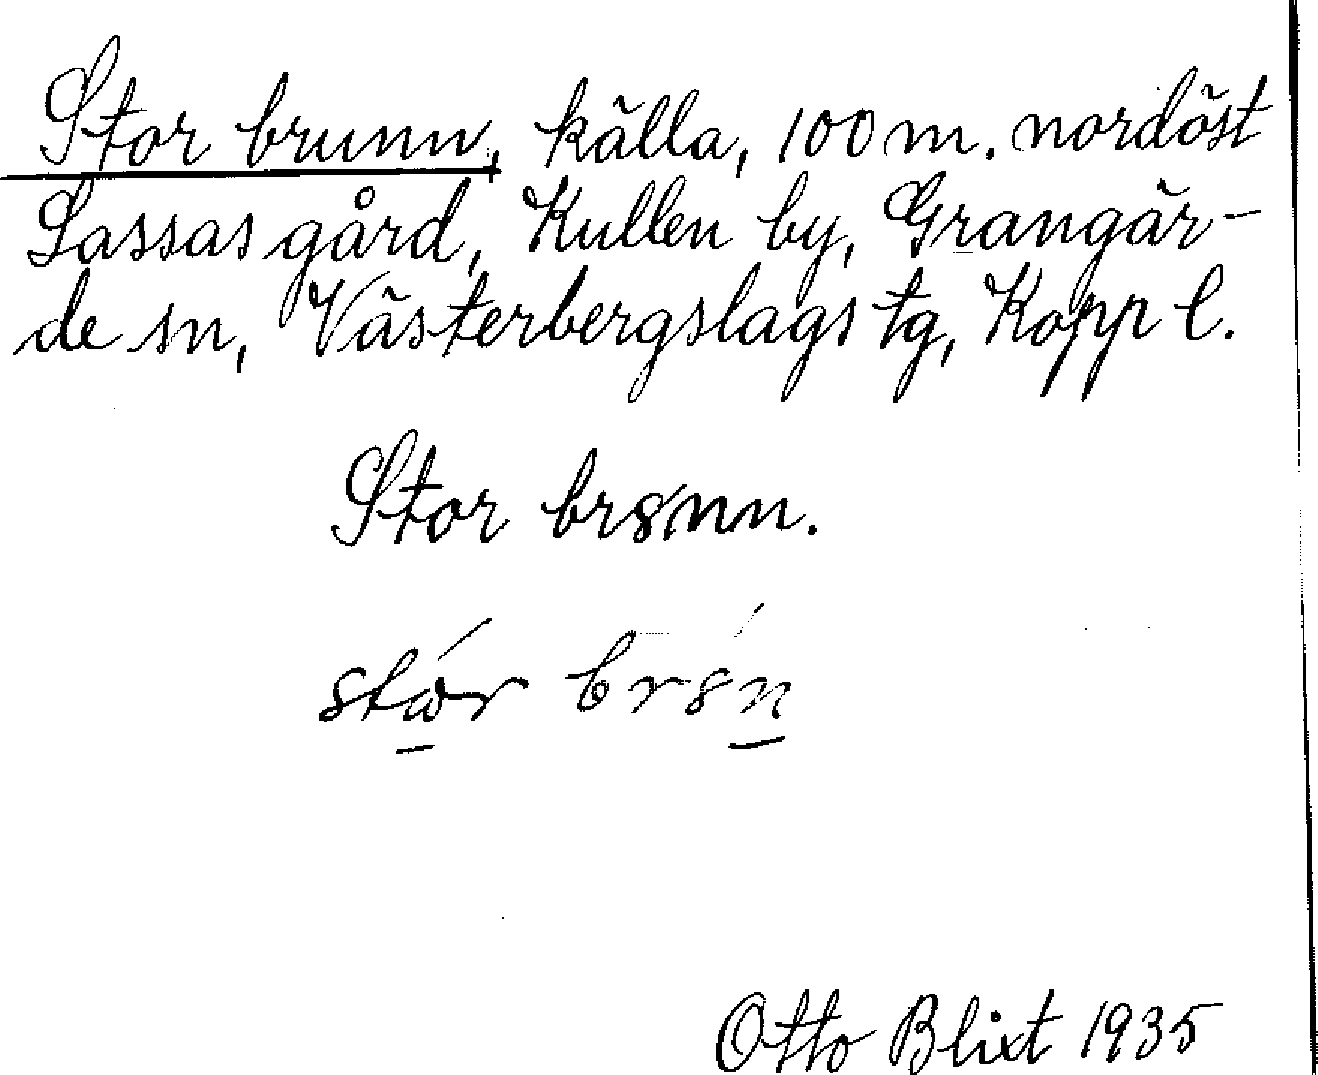 Stor brunn, källa, 100 m. nordöst
Lassas gård, Kullen by, Grangär-
de sn, Västerbergslags tg, Kopp l.
Stor br8nn.
stór br8́n
Otto Blixt 1935